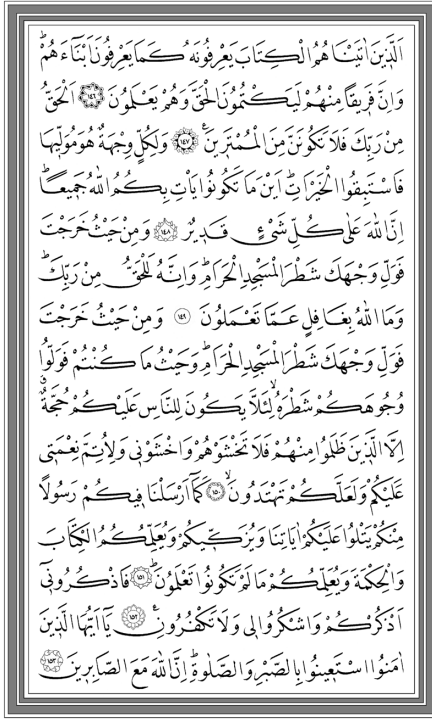 اَلَّذ۪ينَ اٰتَيْنَاهُمُ الْكِتَابَ يَعْرِفُونَهُ كَمَا يَعْرِفُونَ اَبْنَٓاءَهُمْۜ
وَاِنَّ فَر۪يقًا مِنْهُمْ لَيَكْتُمُونَ الْحَقَّ وَهُمْ يَعْلَمُونَ ﴿١٤٦﴾ اَلْحَقُّ
مِنْ رَبِّكَ فَلَا تَكُونَنَّ مِنَ الْمُمْتَر۪ينَ۟ ﴿١٤٧﴾ وَلِكُلٍّ وِجْهَةٌ هُوَ مُوَلّ۪يهَا
فَاسْتَبِقُوا الْخَيْرَاتِۜ اَيْنَ مَا تَكُونُوا يَأْتِ بِكُمُ اللّٰهُ جَم۪يعًاۜ
اِنَّ اللّٰهَ عَلٰى كُلِّ شَيْءٍ قَد۪يرٌ ﴿١٤٨﴾ وَمِنْ حَيْثُ خَرَجْتَ
فَوَلِّ وَجْهَكَ شَطْرَ الْمَسْجِدِ الْحَرَامِۜ وَاِنَّهُ لَلْحَقُّ مِنْ رَبِّكَۜ
وَمَا اللّٰهُ بِغَافِلٍ عَمَّا تَعْمَلُونَ ﴿١٤٩﴾ وَمِنْ حَيْثُ خَرَجْتَ
فَوَلِّ وَجْهَكَ شَطْرَ الْمَسْجِدِ الْحَرَامِۜ وَحَيْثُ مَا كُنْتُمْ فَوَلُّوا
وُجُوهَكُمْ شَطْرَهُۙ لِئَلَّا يَكُونَ لِلنَّاسِ عَلَيْكُمْ حُجَّةٌۗ
اِلَّا الَّذ۪ينَ ظَلَمُوا مِنْهُمْ فَلَا تَخْشَوْهُمْ وَاخْشَوْن۪ي وَلِاُتِمَّ نِعْمَت۪ي
عَلَيْكُمْ وَلَعَلَّكُمْ تَهْتَدُونَۙ ﴿١٥٠﴾ كَمَٓا اَرْسَلْنَا ف۪يكُمْ رَسُولًا
مِنْكُمْ يَتْلُوا عَلَيْكُمْ اٰيَاتِنَا وَيُزَكّ۪يكُمْ وَيُعَلِّمُكُمُ الْكِتَابَ
وَالْحِكْمَةَ وَيُعَلِّمُكُمْ مَا لَمْ تَكُونُوا تَعْلَمُونَۜ ﴿١٥١﴾ فَاذْكُرُون۪ٓي
اَذْكُرْكُمْ وَاشْكُرُوا ل۪ي وَلَا تَكْفُرُونِ۟ ﴿١٥٢﴾ يَٓا اَيُّهَا الَّذ۪ينَ
اٰمَنُوا اسْتَع۪ينُوا بِالصَّبْرِ وَالصَّلٰوةِۜ اِنَّ اللّٰهَ مَعَ الصَّابِر۪ينَ ﴿١٥٣﴾